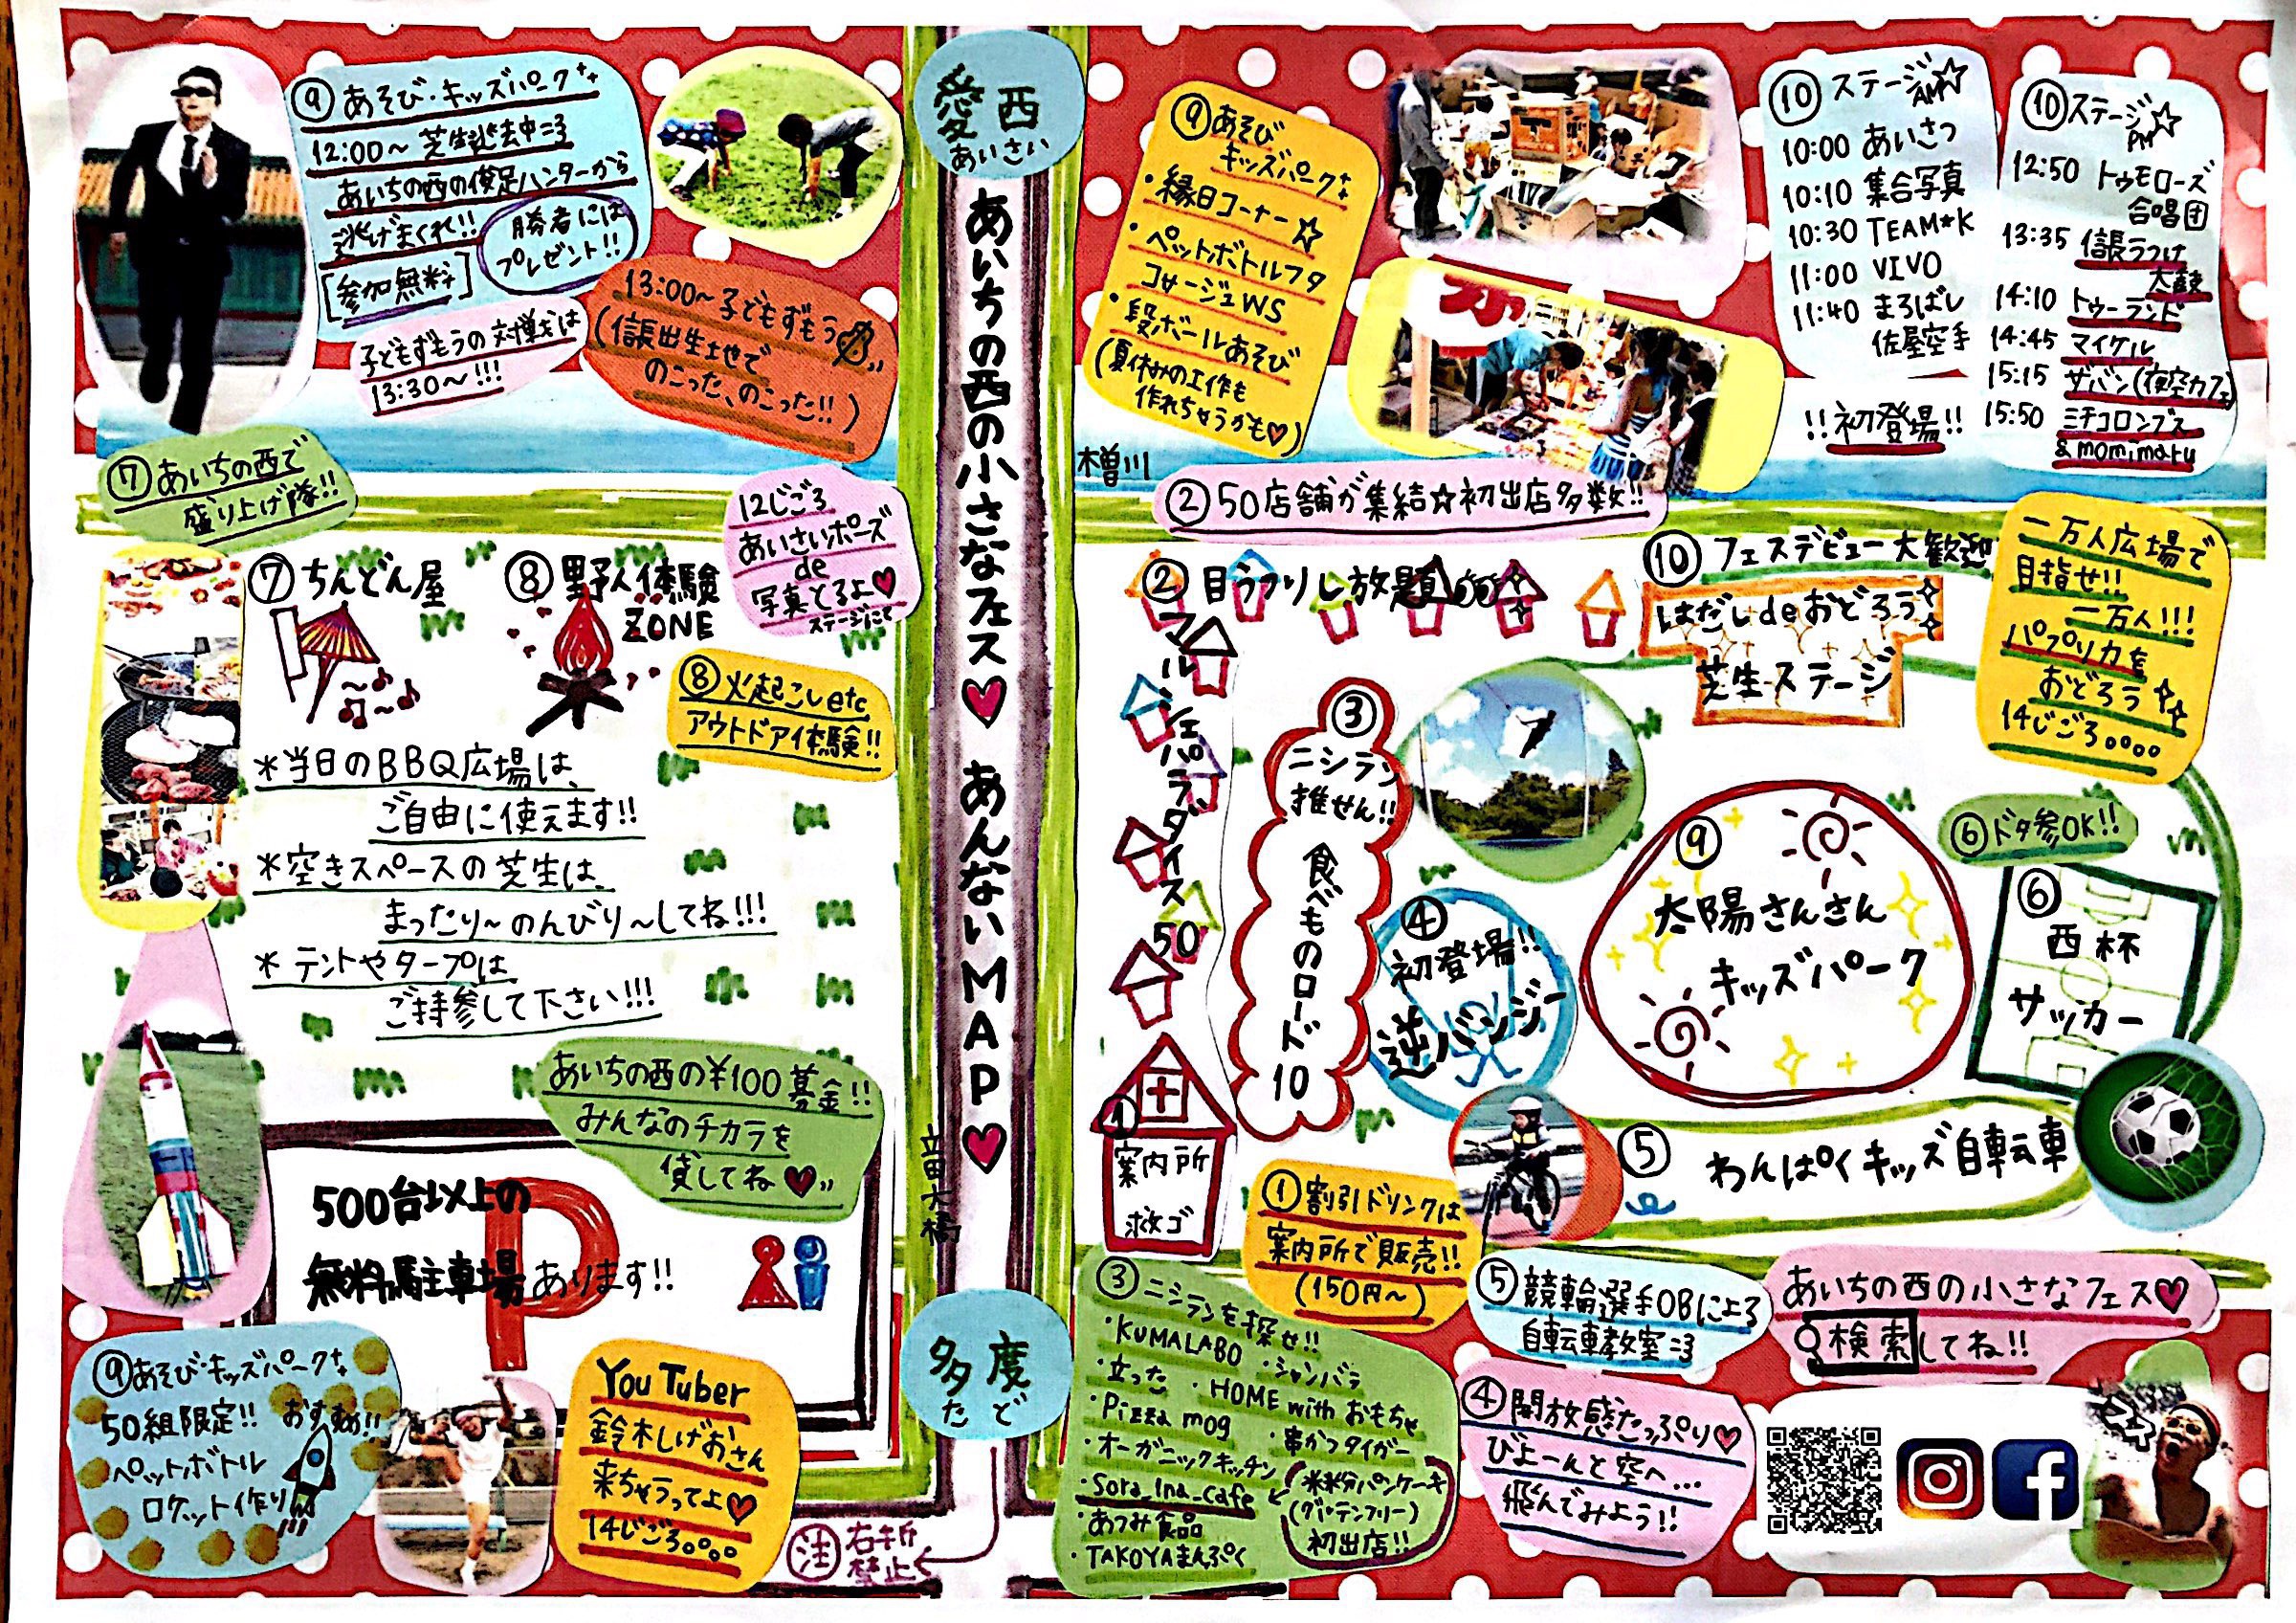 ⑨あそび・キッズパーク
12:00～芝生逃走中
あいちの西の俊足ハンターから
逃げまくれ!!
[参加無料]
勝者には
プレゼント!!
子どもずもうの対戦は
13:30～!!!
13:00～子どもずもう
(信長出生地で
のこった、のこった!!)
愛西
あいさい
あいちの西の小さなフェス♥あんないMAP♥
⑨あそび
キッズパーク
・縁日コーナー☆
・ペットボトルフタ
コサージュWS
・段ボールあそび
(夏休みの工作も
作れちゃうかも♥)
⑩ステージ☆
AM
10:00 あいさつ
10:10 集合写真
10:30 TEAM★K
11:00 VIVO
11:40 まろばし
佐屋空手
!!初登場!!
⑩ステージ☆
PM
12:50 トゥモローズ
合唱団
13:35 信長うつけ
太鼓
14:10 トゥーランド
14:45 マイケル
15:15 ザバン(夜空カフェ)
15:50 ミチコロンブス
&momimaru
⑦あいちの西で
盛り上げ隊!!
12じごろ
あいさいポーズ
de
写真とるよ♥
ステージにて
②50店舗が集結☆初出店多数!!
⑦ちんどん屋
⑧野人体験
ZONE
⑧火起こしetc
アウトドア体験!!
*当日のBBQ広場は、
ご自由に使えます!!
*空きスペースの芝生は、
まったり～のんびり～してね!!!
*テントやタープは
ご持参して下さい!!!
②目うつりし放題
マルシェパラダイス50
③
ニシラン
推せん!!
食べものロード10
⑩フェスデビュー大歓迎
はだしdeおどろう
芝生ステージ
一万人広場で
目指せ!!
一万人!!!
パプリカを
おどろう
14じごろ。。。。
④
初登場!!
逆バンジー
⑨
太陽さんさん
キッズパーク
⑥ドタ参OK!!
⑥
西杯
サッカー
①
案内所
救ゴ
⑤わんぱくキッズ自転車
あいちの西の¥100募金!!
みんなのチカラを
貸してね♥
500台以上の
無料駐車場あります!!
P
立田大橋
①割引ドリンクは
案内所で販売!!
(150円～)
③ニシランを探せ!!
・KUMALABO
・シャンバラ
・立った
・HOME with おもちゃ
・Pizza mog
・串かつタイガー
・オーガニックキッチン
・Sora_Ina_cafe
米粉パンケーキ
(グルテンフリー)
初出店!!
・あつみ食品
・TAKOYAまんぷく
⑤競輪選手OBによる
自転車教室
あいちの西の小さなフェス♥
検索してね!!
④開放感たっぷり♥
びよーんと空へ…
飛んでみよう!!
⑨あそび・キッズパーク
50組限定!!
おすすめ!!
ペットボトル
ロケット作り
YouTuber
鈴木しげおさん
来ちゃうってよ♥
14じごろ。。。。
多度
たど
注 右折
禁止
フェス